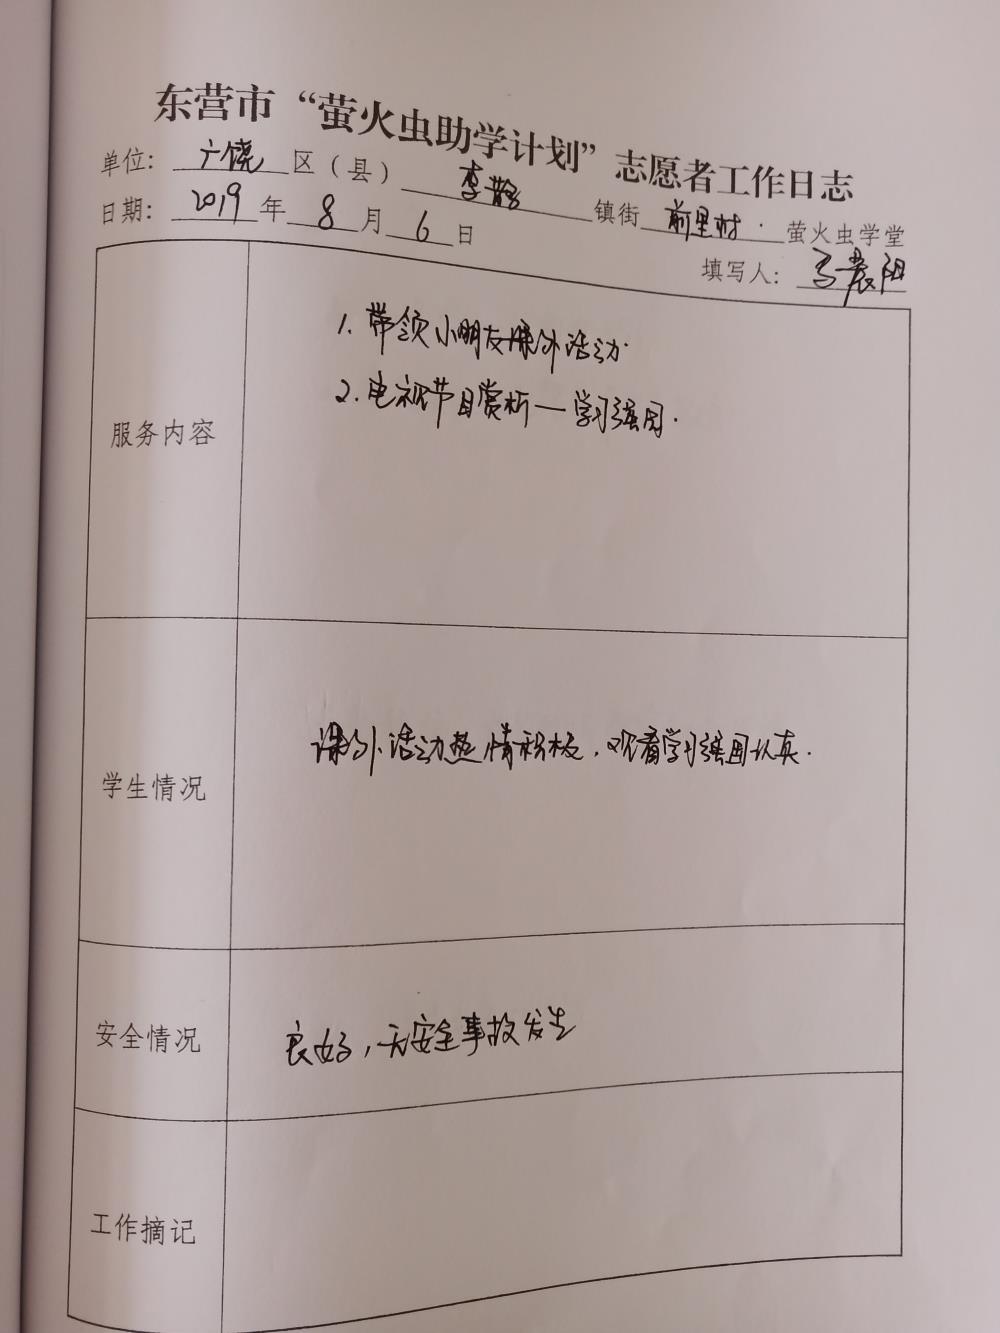 东营市“萤火虫助学计划”志愿者工作日志
单位：广饶区（县）李鹊镇街前里村萤火虫学堂
日期：2019年8月6日
填写人：马晨阳
服务内容
1. 带领小朋友课外活动.
2. 电视节目赏析—学习强国.
学生情况
课外活动热情积极，观看学习强国认真.
安全情况
良好，无安全事故发生
工作摘记